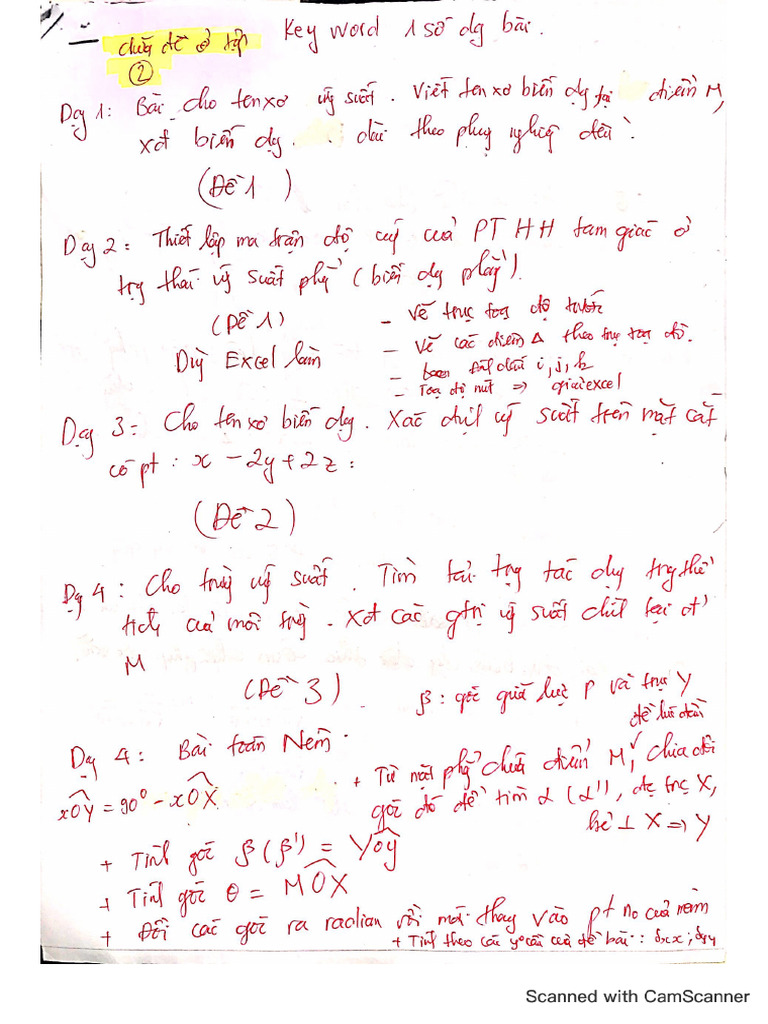 chữa đề ở tập
②
Key word 1 số dg bài.
Dạg 1: Bài cho tenxơ ứg suất. Viết tenxơ biến dạg tại điểm M,
xđ biến dg. dài theo phưg nghiêg đều.
(Đề 1)
Dạg 2: Thiết lập ma trận độ cứg của PT HH tam giác ở
trg thái ứg suất phẳg (biến dg phẳg).
(Đề 1)
Dùg Excel làm
- Vẽ trục toạ độ trước
- Vẽ các điểm Δ theo trục toạ độ.
- đánh dấu i, j, k
- Toạ độ nút ⇒ giải excel
Dạg 3: Cho tenxơ biến dg. Xác địh ứg suất trên mặt cắt
có pt: x - 2y + 2z:
(Đề 2)
Dạg 4: Cho trườg ứg suất. Tìm tải trg tác dụg trg thể
tích của môi trườg. Xđ các gtrị ứg suất chíh tại đ'
M
(Đề 3)
β: góc giữa lực P và trục Y
đề bài
Dạg 4: Bài toán Nêm.
xOY = 90° - xOX
+ Từ mặt phẳg chứa điểm M, chia đôi
góc đó để tìm α (α'), đc trục X,
kẻ ⊥ X ⇒ Y
+ Tíh góc β (β') = YOy
+ Tíh góc θ = MOX
+ Đổi các góc ra radian rồi mới thay vào pt no của nêm
+ Tíh theo các y cầu của đề bài:
Scanned with CamScanner